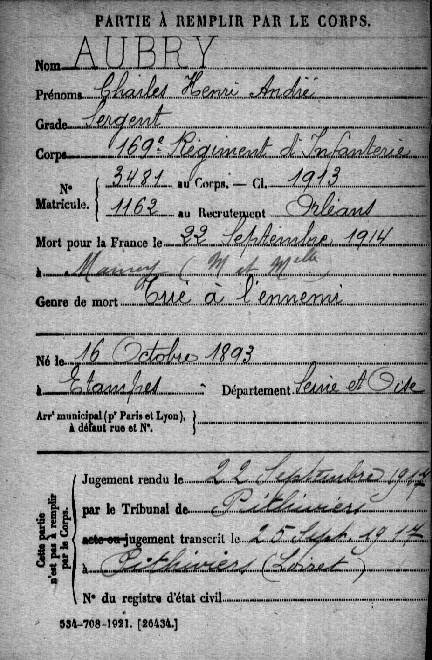 PARTIE À REMPLIR PAR LE CORPS.
Nom AUBRY
Prénoms Charles Henri André
Grade Sergent
Corps 169e Régiment d'Infanterie
N° Matricule. { 3481 au Corps. — Cl. 1913
1162 au Recrutement Orléans
Mort pour la France le 22 Septembre 1914
à (M et Mlle)
Genre de mort Tué à l'ennemi
Né le 16 Octobre 1893
à Etampes Département Seine et Oise
Arrt municipal (pr Paris et Lyon), à défaut rue et N°. }
Cette partie n'est pas à remplir par le Corps.
Jugement rendu le 22 Septembre 1917
par le Tribunal de Pithiviers
acte ou jugement transcrit le 25 Sept 1917
à Pithiviers (Loiret)
N° du registre d'état civil
534-708-1921. [26434.]